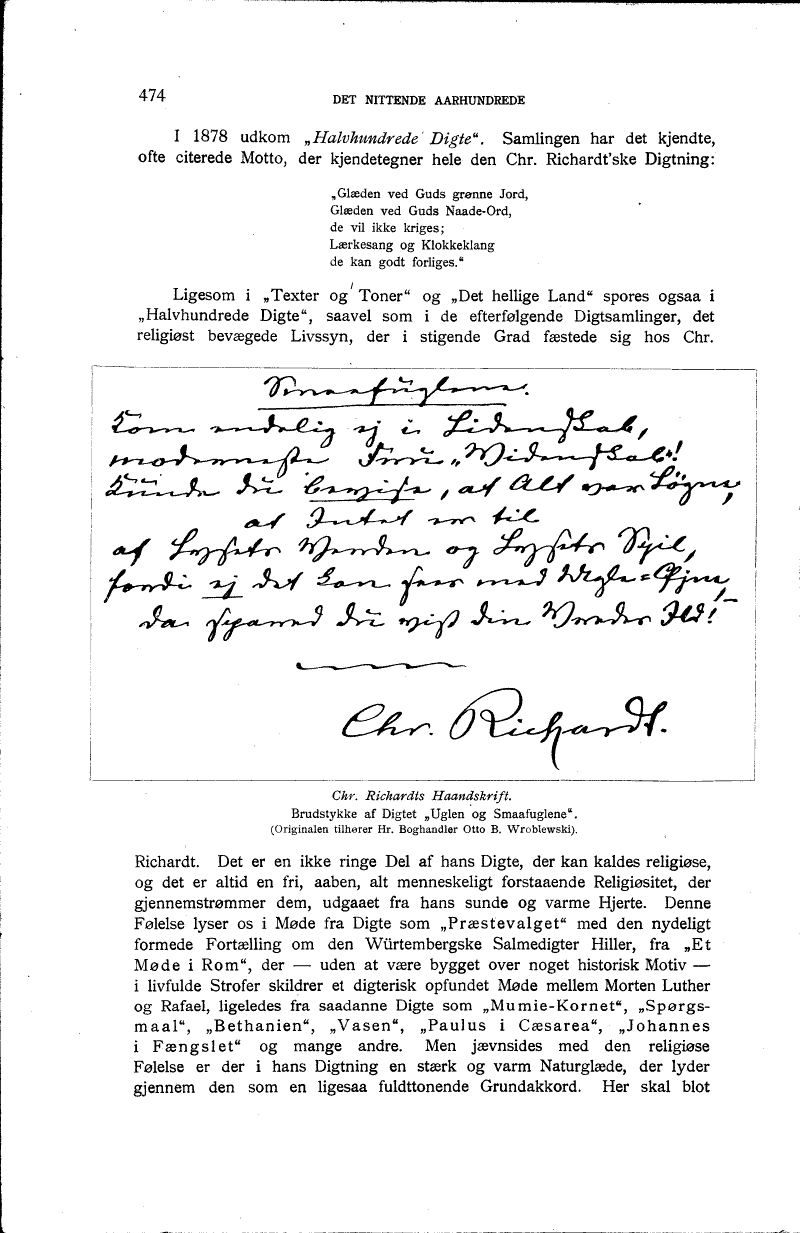 474
DET NITTENDE AARHUNDREDE
I 1878 udkom „Halvhundrede Digte“. Samlingen har det kjendte,
ofte citerede Motto, der kjendetegner hele den Chr. Richardt'ske Digtning:
„Glæden ved Guds grønne Jord,
Glæden ved Guds Naade-Ord,
de vil ikke kriges;
Lærkesang og Klokkeklang
de kan godt forliges.“
Ligesom i „Texter og Toner“ og „Det hellige Land“ spores ogsaa i
„Halvhundrede Digte“, saavel som i de efterfølgende Digtsamlinger, det
religiøst bevægede Livssyn, der i stigende Grad fæstede sig hos Chr.
Smaafuglene.
Kom endelig ej i Lidenskab,
moderneste Fru „Widenskab“!
Kunde du bevise, at Alt var Løgn,
at Intet er til
af Lysets Verden og Lysets Spil,
fordi ej det kan sees med Ugle=Øjne,
da spared du vist din Vredes Ild! —
Chr. Richardt.
Chr. Richardts Haandskrift.
Brudstykke af Digtet „Uglen og Smaafuglene“.
(Originalen tilhører Hr. Boghandler Otto B. Wroblewski).
Richardt. Det er en ikke ringe Del af hans Digte, der kan kaldes religiøse,
og det er altid en fri, aaben, alt menneskeligt forstaaende Religiøsitet, der
gjennemstrømmer dem, udgaaet fra hans sunde og varme Hjerte. Denne
Følelse lyser os i Møde fra Digte som „Præstevalget“ med den nydeligt
formede Fortælling om den Würtembergske Salmedigter Hiller, fra „Et
Møde i Rom“, der — uden at være bygget over noget historisk Motiv —
i livfulde Strofer skildrer et digterisk opfundet Møde mellem Morten Luther
og Rafael, ligeledes fra saadanne Digte som „Mumie-Kornet“, „Spørgs-
maal“, „Bethanien“, „Vasen“, „Paulus i Cæsarea“, „Johannes
i Fængslet“ og mange andre. Men jævnsides med den religiøse
Følelse er der i hans Digtning en stærk og varm Naturglæde, der lyder
gjennem den som en ligesaa fuldttonende Grundakkord. Her skal blot